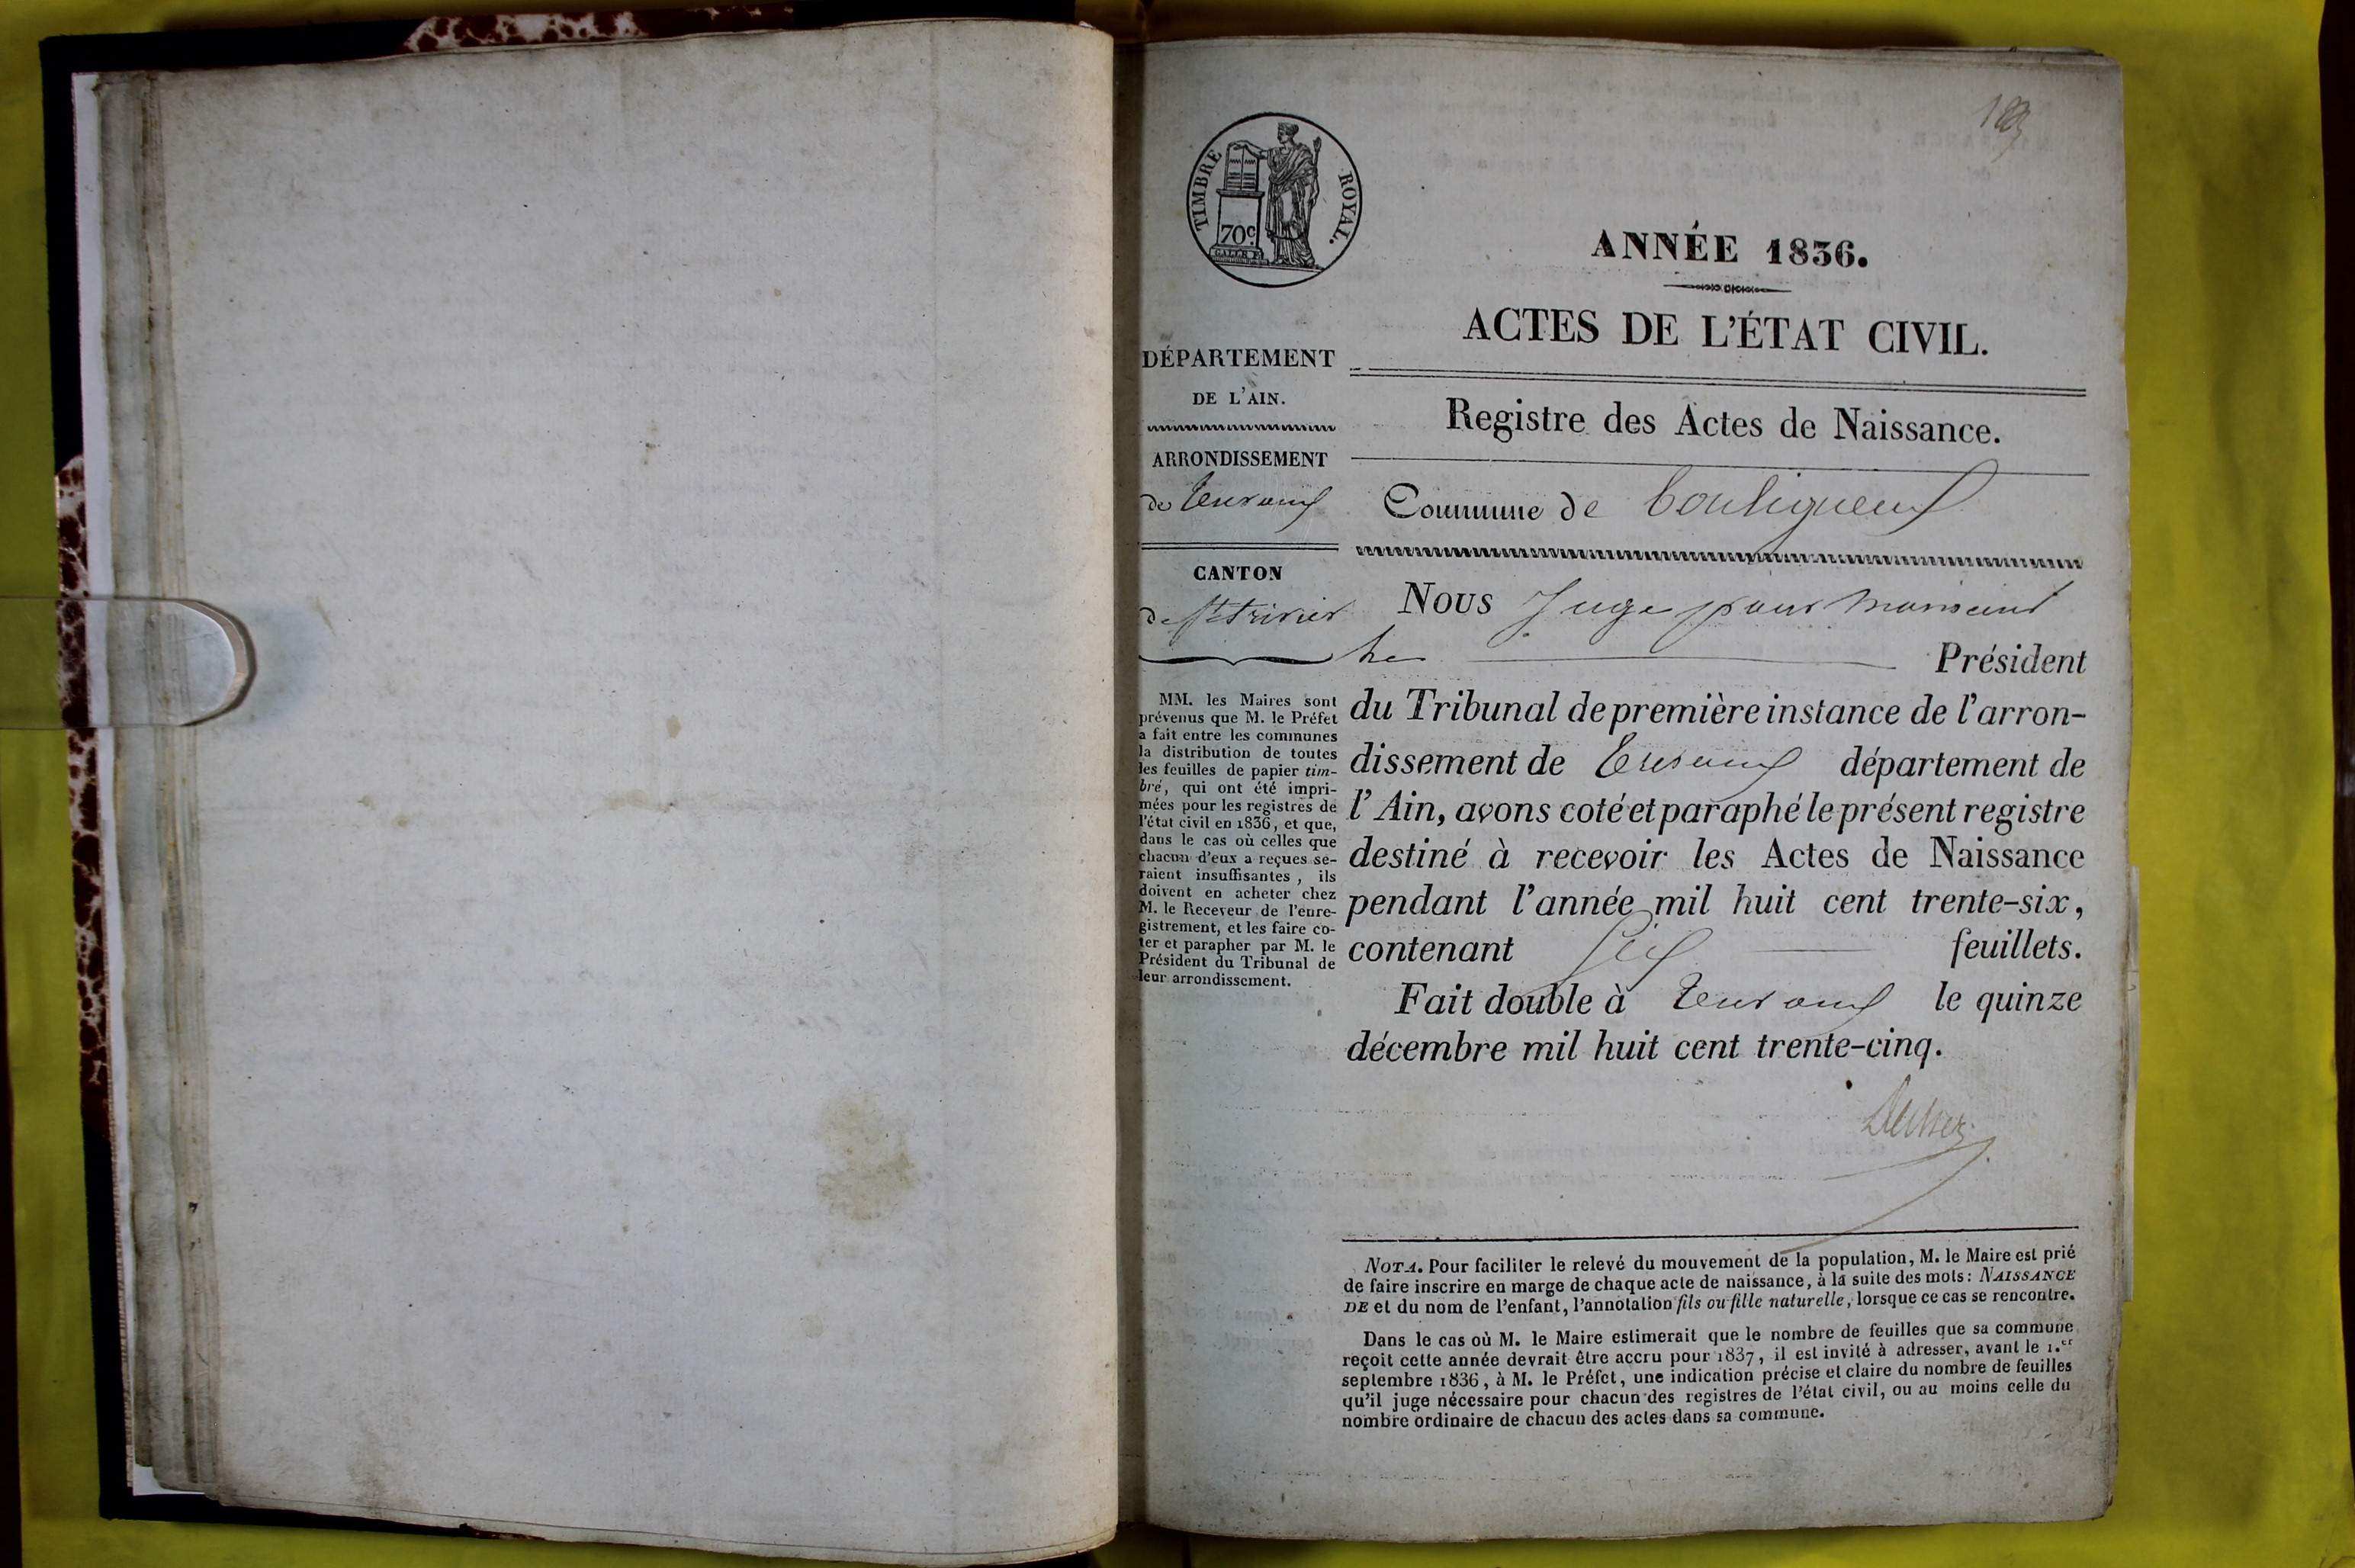 TIMBRE ROYAL.
70c
GALLE F.
ANNÉE 1836.
ACTES DE L'ÉTAT CIVIL.
Registre des Actes de Naissance.
Commune de Bouligneux
DÉPARTEMENT
DE L'AIN.
ARRONDISSEMENT
de Trevoux
CANTON
de St trivier
MM. les Maires sont
prévenus que M. le Préfet
a fait entre les communes
la distribution de toutes
les feuilles de papier tim-
bré, qui ont été impri-
mées pour les registres de
l'état civil en 1836, et que,
dans le cas où celles que
chacun d'eux a reçues se-
raient insuffisantes, ils
doivent en acheter chez
M. le Receveur de l'enre-
gistrement, et les faire co-
ter et parapher par M. le
Président du Tribunal de
leur arrondissement.
Nous Juge pour Monsieur
le Président
du Tribunal de première instance de l'arron-
dissement de Trevoux département de
l'Ain, avons coté et paraphé le présent registre
destiné à recevoir les Actes de Naissance
pendant l'année mil huit cent trente-six,
contenant Six feuillets.
Fait double à Trevoux le quinze
décembre mil huit cent trente-cinq.
NOTA. Pour faciliter le relevé du mouvement de la population, M. le Maire est prié
de faire inscrire en marge de chaque acte de naissance, à la suite des mots: NAISSANCE
DE et du nom de l'enfant, l'annotation fils ou fille naturelle, lorsque ce cas se rencontre.
Dans le cas où M. le Maire estimerait que le nombre de feuilles que sa commune
reçoit cette année devrait être accru pour 1837, il est invité à adresser, avant le 1.er
septembre 1836, à M. le Préfet, une indication précise et claire du nombre de feuilles
qu'il juge nécessaire pour chacun des registres de l'état civil, ou au moins celle du
nombre ordinaire de chacun des actes dans sa commune.